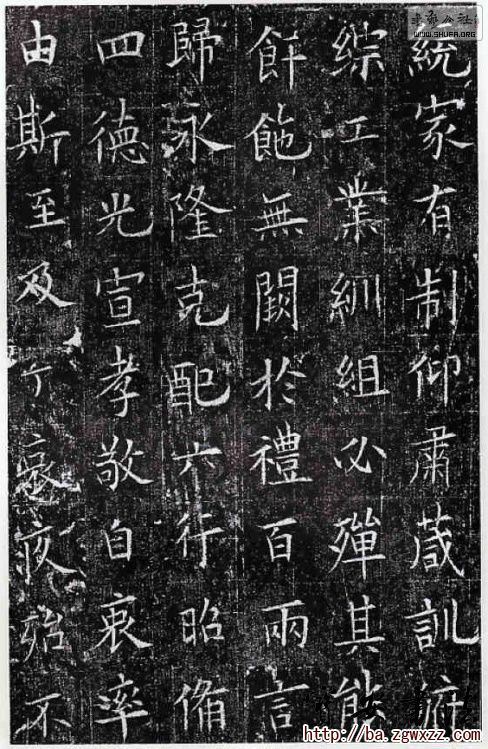 統家有制仰肅葴訓俯
综工業紃組必殫其能
餠飿無闕於禮百兩言
歸永隆克配六行昭備
四德光宣孝敬自衷率
由斯至及丁哀疚殆不
WWW.SHUFA.ORG
http://ba.zgwxzz.com